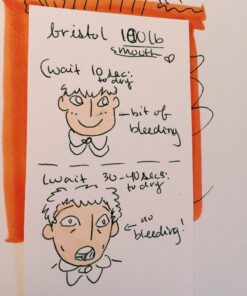 bristol 100lb
smooth
(wait 10 sec:
to dry
←bit of
bleeding
(wait 30-40 sec:
to dry
←no
bleeding!